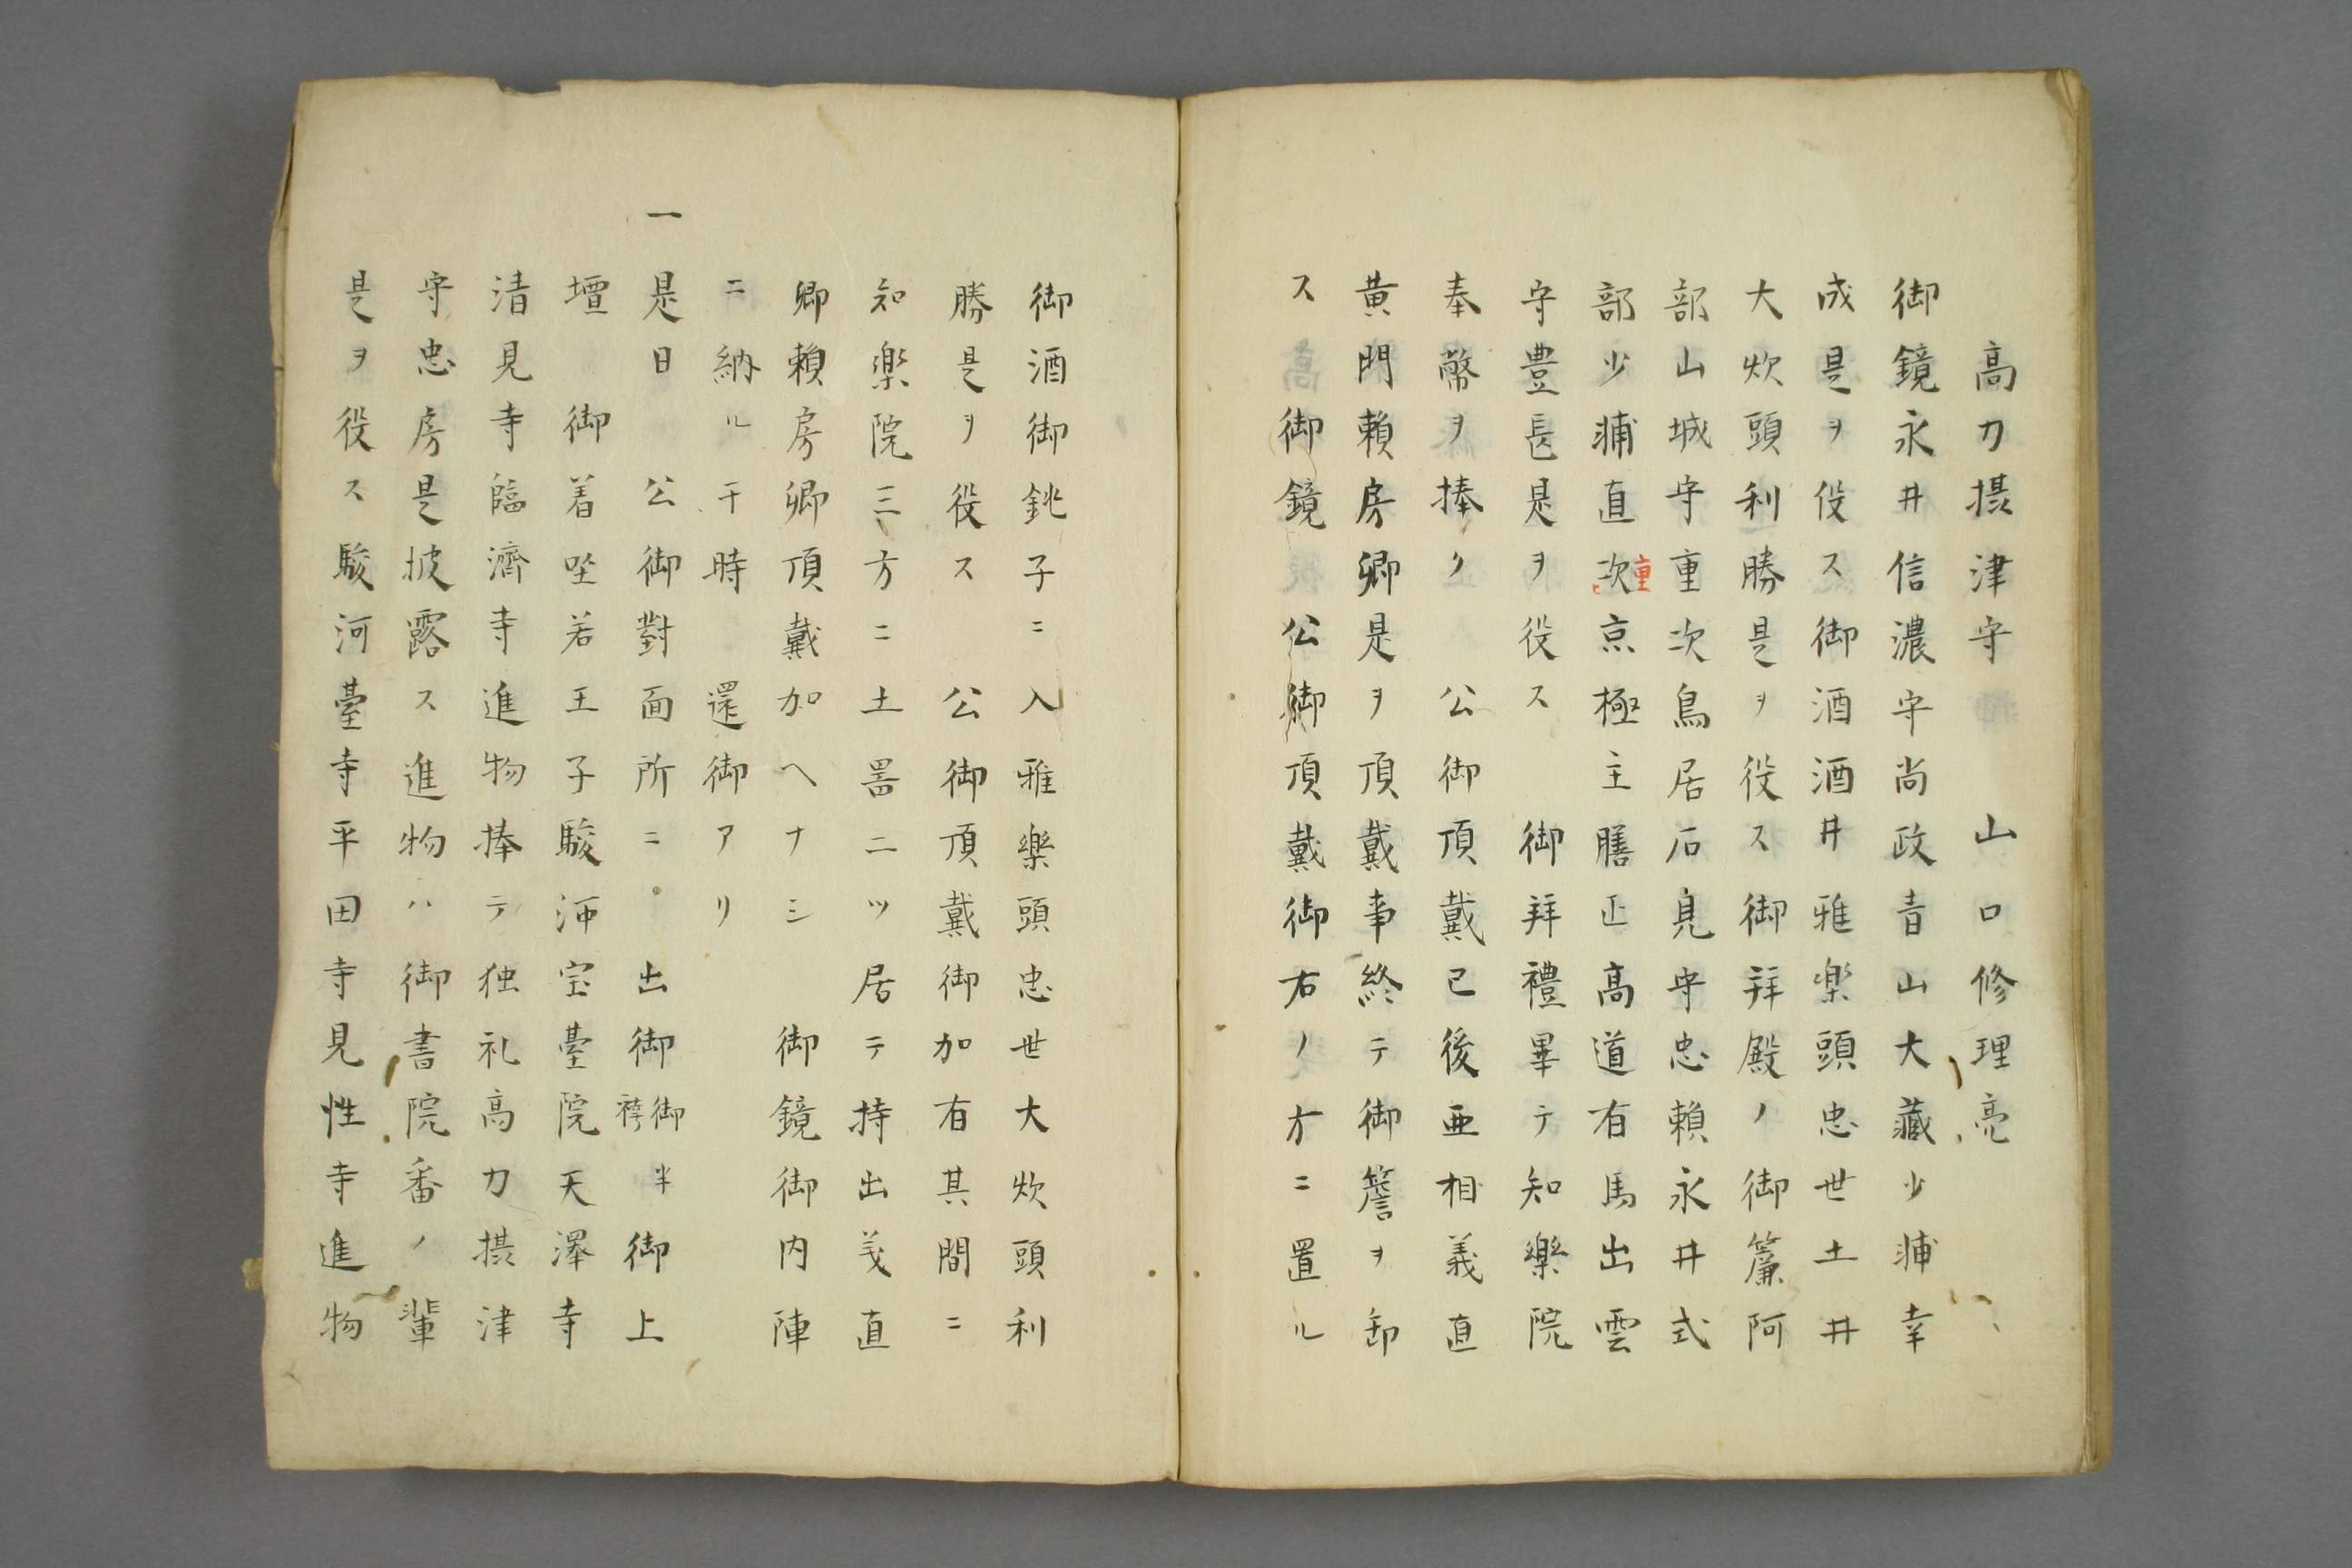 高力摂津守　山口修理亮
御鏡永井信濃守尚政青山大藏少輔幸
成是ヲ役ス御酒酒井雅楽頭忠世土井
大炊頭利勝是ヲ役ス御拜殿ノ御簾阿
部山城守重次鳥居石見守忠頼永井式
部少輔直次京極主膳正高道有馬出雲
重
守豊長是ヲ役ス　御拜禮畢テ知樂院
奉幣ヲ捧ク　公御頂戴已後亜相義直
黄門頼房卿是ヲ頂戴事終テ御簷ヲ卸
ス御鏡　公御頂戴御右ノ方ニ置ル
御酒御銚子ニ入雅樂頭忠世大炊頭利
勝是ヲ役ス　公御頂戴御加有其間ニ
知楽院三方ニ土器二ツ居テ持出義直
卿頼房卿頂戴加ヘナシ　御鏡御内陣
ニ納ル于時　還御アリ
一是日　公御對面所ニ　出御御袴半御上
壇　御着座若王子駿河宝臺院天澤寺
清見寺臨濟寺進物捧テ独礼高力摂津
守忠房是披露ス進物ハ御書院番ノ輩
是ヲ役ス駿河臺寺平田寺見性寺進物